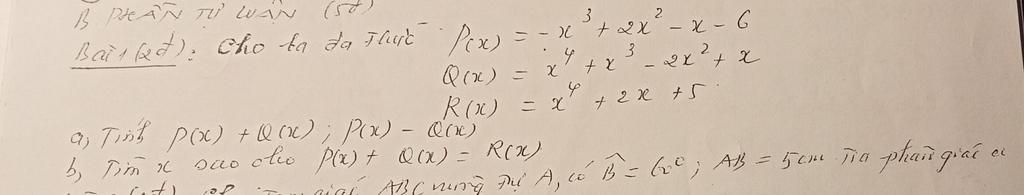 B. PHẦN TỰ LUẬN (5đ)
Bài 1 (2đ): Cho ta đa thức P(x) = -x³ + 2x² - x - 6
Q(x) = x⁴ + x³ - 2x² + x
R(x) = x⁴ + 2x + 5
a, Tính P(x) + Q(x) ; P(x) - Q(x)
b, Tìm x sao cho P(x) + Q(x) = R(x)
giác ABC vuông tại A, có B̂ = 60° ; AB = 5cm Tia phân giác